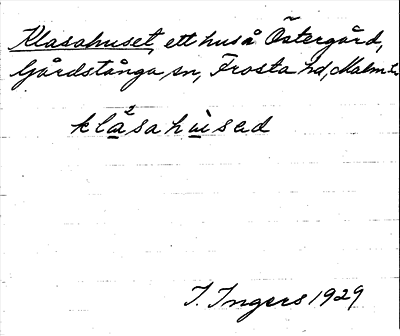 Klasahuset, ett hus å Östergård,
Gårdstånga sn, Frosta hd, Malm. l.
klåsahùsad
I. Ingers 1929